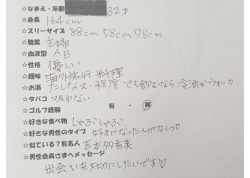 ☆なまえ・年齢 32才
☆身長 164cm
☆スリーサイズ 88cm 58cm 78cm
☆職業 主婦
☆血液型 AB
☆性格 優しい
☆趣味 海外旅行 料理
☆お酒 たしなむ程度 でも飲むなら冷酒かウォッカ
☆タバコ 吸わない
☆ゴルフ経験 有・無
☆好きな食べ物 しゃぶしゃぶ
☆好きな男性のタイプ 好きになった人がタイプ
☆似ている?有名人 吉本多香美
☆男性会員さまへメッセージ
出会いを大切にしたいです♡